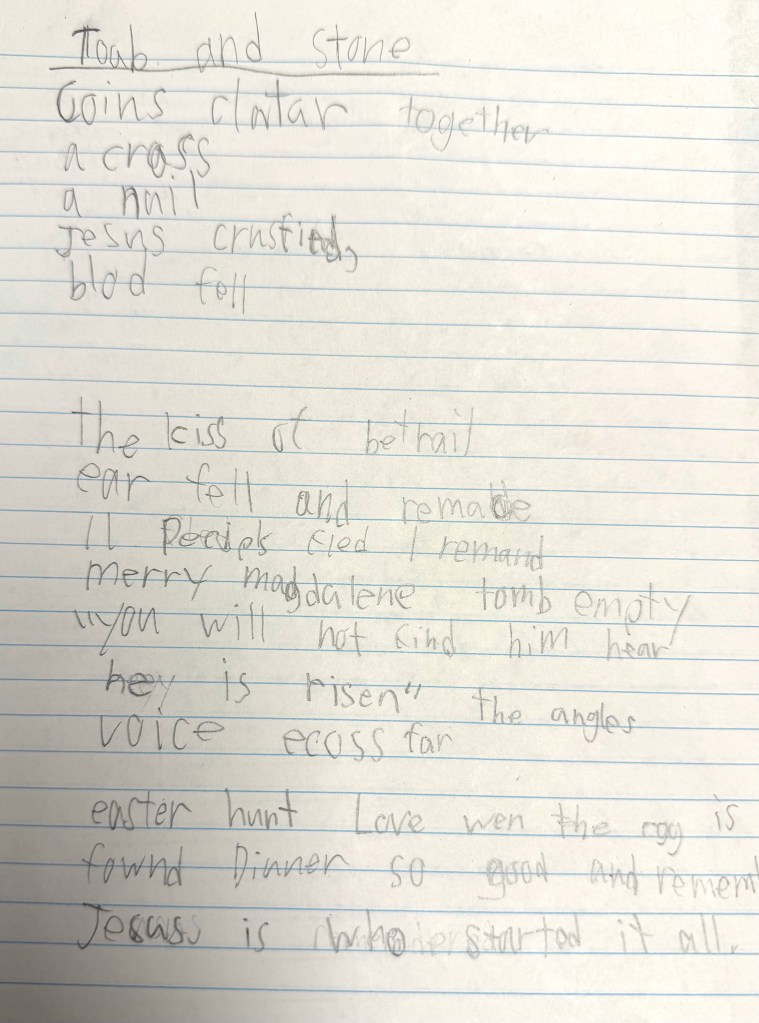 Toab and stone
Coins clatar together
a cross
a nail
Jesus crusfied,
blod fell
the kiss of bethail
ear fell and remade
11 fled 1 remand
merry magdalene tomb empty
"you will not find him hear
hey is risen" the angles
voice ecoss far
easter hunt Love wen the egg is
fownd Dinner so good and rememb
Jesus is who started it all.